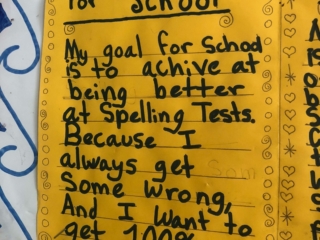 for School
My goal for School
is to achive at
being better
at Spelling Tests.
Because I
always get Som
Some wrong,
And I want to
get 100%